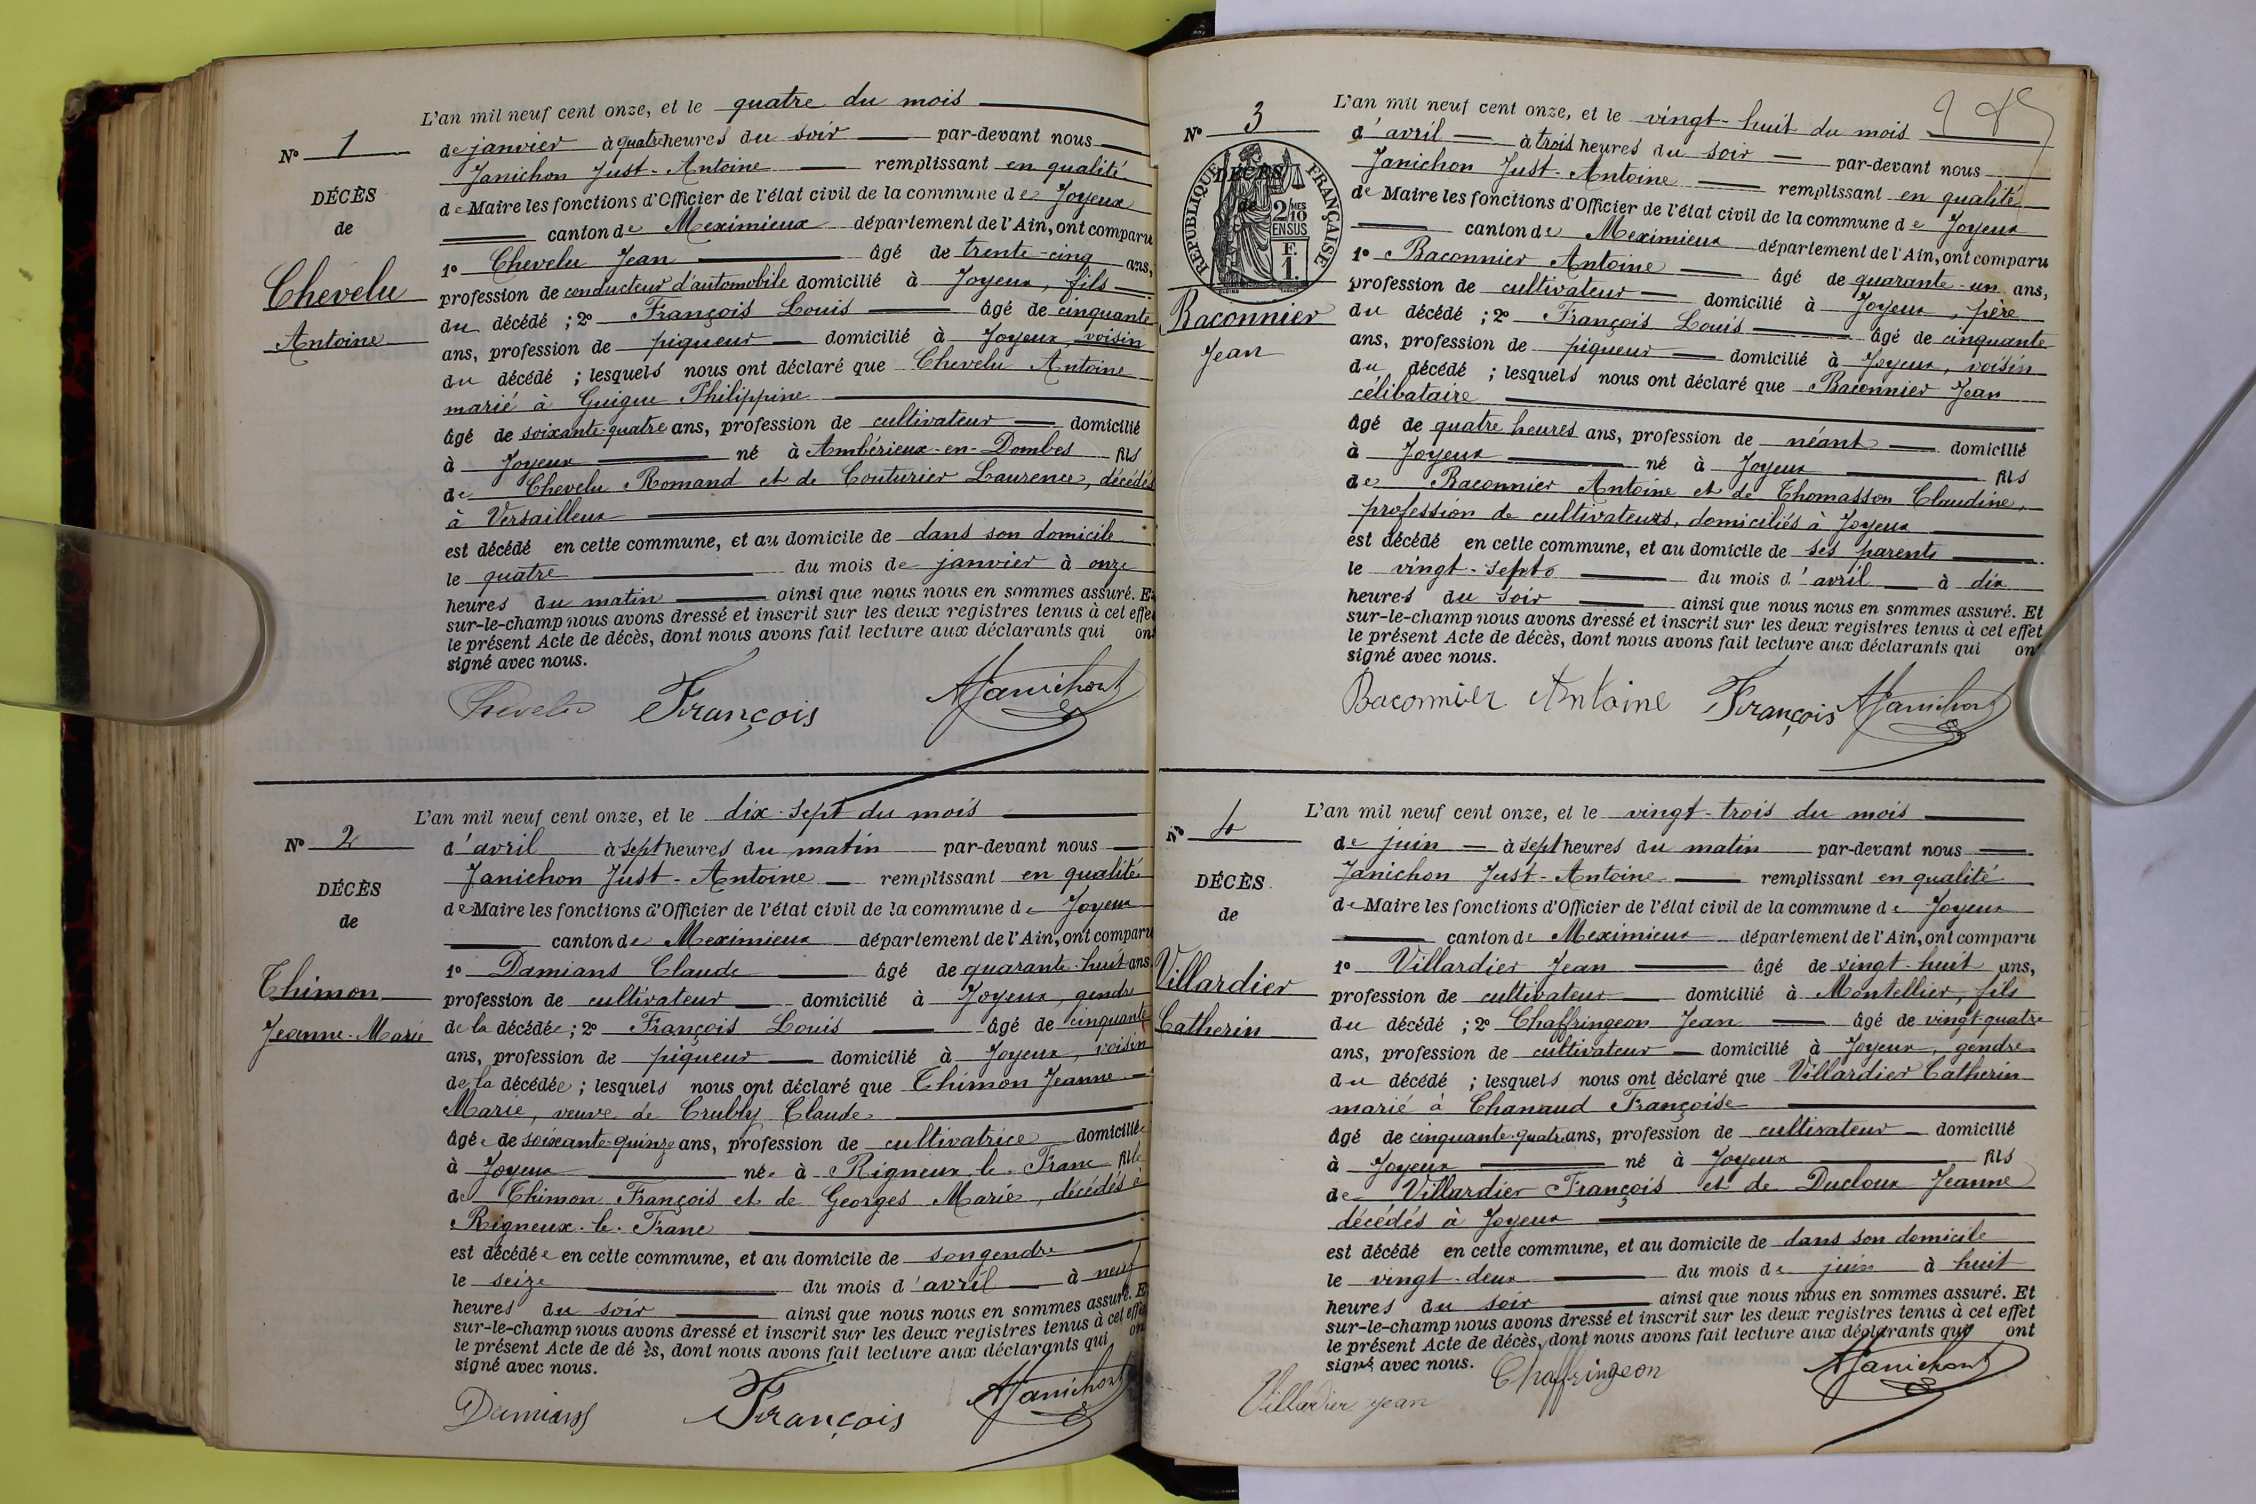 L'an mil neuf cent onze, et le quatre du mois
N° 1
de janvier à quatre heures du soir par-devant nous
Janichon Just-Antoine remplissant en qualité
DÉCÈS
de Maire les fonctions d'Officier de l'état civil de la commune de Joyeux
de
canton de Meximieux département de l'Ain, ont comparu
1° Chevelu Jean âgé de trente-cinq ans,
Chevelu
profession de conducteur d'automobile domicilié à Joyeux, fils
du décédé ; 2° François Louis âgé de cinquante
Antoine
ans, profession de piqueur domicilié à Joyeux, voisin
du décédé ; lesquels nous ont déclaré que Chevelu Antoine
marié à Guigue Philippine
âgé de soixante-quatre ans, profession de cultivateur domicilié
à Joyeux né à Ambérieux-en-Dombes fils
de Chevelu Romand et de Couturier Laurence, décédés
à Versailleux
est décédé en cette commune, et au domicile de dans son domicile
le quatre du mois de janvier à onze
heures du matin ainsi que nous nous en sommes assuré. Et
sur-le-champ nous avons dressé et inscrit sur les deux registres tenus à cet effet
le présent Acte de décès, dont nous avons fait lecture aux déclarants qui ont
signé avec nous.
Chevelu François AJanichon
L'an mil neuf cent onze, et le dix-sept du mois
N° 2
d'avril à sept heures du matin par-devant nous
Janichon Just-Antoine remplissant en qualité
DÉCÈS
de Maire les fonctions d'Officier de l'état civil de la commune de Joyeux
de
canton de Meximieux département de l'Ain, ont comparu
1° Damians Claude âgé de quarante-huit ans
Thimon
profession de cultivateur domicilié à Joyeux, gendre
de la décédée ; 2° François Louis âgé de cinquante
Jeanne-Marie
ans, profession de piqueur domicilié à Joyeux, voisin
de la décédée ; lesquels nous ont déclaré que Thimon Jeanne-
Marie, veuve de Crubly Claude
âgée de soixante-quinze ans, profession de cultivatrice domiciliée
à Joyeux née à Rigneux-le-Franc fille
de Thimon François et de Georges Marie, décédés à
Rigneux-le-Franc
est décédée en cette commune, et au domicile de son gendre
le seize du mois d'avril à neuf
heures du soir ainsi que nous nous en sommes assuré. Et
sur-le-champ nous avons dressé et inscrit sur les deux registres tenus à cet effet
le présent Acte de décès, dont nous avons fait lecture aux déclarants qui ont
signé avec nous.
Damians François AJanichon
L'an mil neuf cent onze, et le vingt-huit du mois
N° 3
d'avril à trois heures du soir par-devant nous
Janichon Just-Antoine remplissant en qualité
DÉCÈS
de
RÉPUBLIQUE FRANÇAISE
2/10 MES
EN SUS
F.
1.
de Maire les fonctions d'Officier de l'état civil de la commune de Joyeux
canton de Meximieux département de l'Ain, ont comparu
1° Baconnier Antoine âgé de quarante-un ans,
profession de cultivateur domicilié à Joyeux, père
Baconnier
du décédé ; 2° François Louis âgé de cinquante
Jean
ans, profession de piqueur domicilié à Joyeux, voisin
du décédé ; lesquels nous ont déclaré que Baconnier Jean
célibataire
âgé de quatre heures ans, profession de néant domicilié
à Joyeux né à Joyeux fils
de Baconnier Antoine et de Thomasson Claudine,
profession de cultivateurs, domiciliés à Joyeux
est décédé en cette commune, et au domicile de ses parents
le vingt-sept du mois d'avril à dix
heures du soir ainsi que nous nous en sommes assuré. Et
sur-le-champ nous avons dressé et inscrit sur les deux registres tenus à cet effet
le présent Acte de décès, dont nous avons fait lecture aux déclarants qui ont
signé avec nous.
Baconnier Antoine François AJanichon
L'an mil neuf cent onze, et le vingt-trois du mois
N° 4
de juin à sept heures du matin par-devant nous
Janichon Just-Antoine remplissant en qualité
DÉCÈS
de Maire les fonctions d'Officier de l'état civil de la commune de Joyeux
de
canton de Meximieux département de l'Ain, ont comparu
1° Villardier Jean âgé de vingt-huit ans,
Villardier
profession de cultivateur domicilié à Montellier, fils
du décédé ; 2° Chaffringeon Jean âgé de vingt-quatre
Catherin
ans, profession de cultivateur domicilié à Joyeux, gendre
du décédé ; lesquels nous ont déclaré que Villardier Catherin
marié à Chanaud Françoise
âgé de cinquante-quatre ans, profession de cultivateur domicilié
à Joyeux né à Joyeux fils
de Villardier François et de Ducloux Jeanne
décédés à Joyeux
est décédé en cette commune, et au domicile de dans son domicile
le vingt-deux du mois de juin à huit
heures du soir ainsi que nous nous en sommes assuré. Et
sur-le-champ nous avons dressé et inscrit sur les deux registres tenus à cet effet
le présent Acte de décès, dont nous avons fait lecture aux déclarants qui ont
signé avec nous. Chaffringeon AJanichon
Villardier Jean